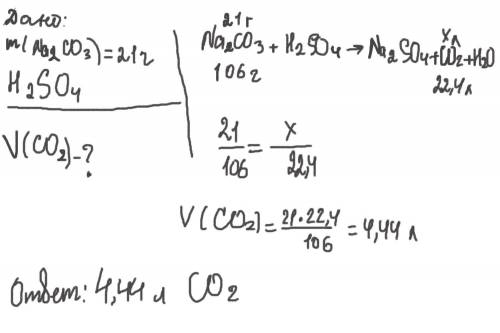 Дано:
m(Na₂CO₃)=21г
H₂SO₄
V(CO₂)-?
21г
xл
Na₂CO₃+H₂SO₄→Na₂SO₄+CO₂+H₂O
106г
22,4л
21/106=x/22,4
V(CO₂)=21·22,4/106=4,44л
Ответ: 4,44л CO₂